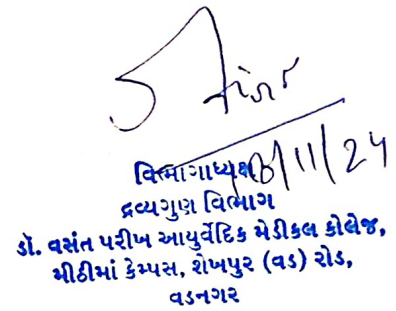 18/11/24
વિભાગાધ્યક્ષ
દ્રવ્યગુણ વિભાગ
ડૉ. વસંત પરીખ આયુર્વેદિક મેડીકલ કોલેજ,
મીઠીમાં કેમ્પસ, શેખપુર (વડ) રોડ,
વડનગર